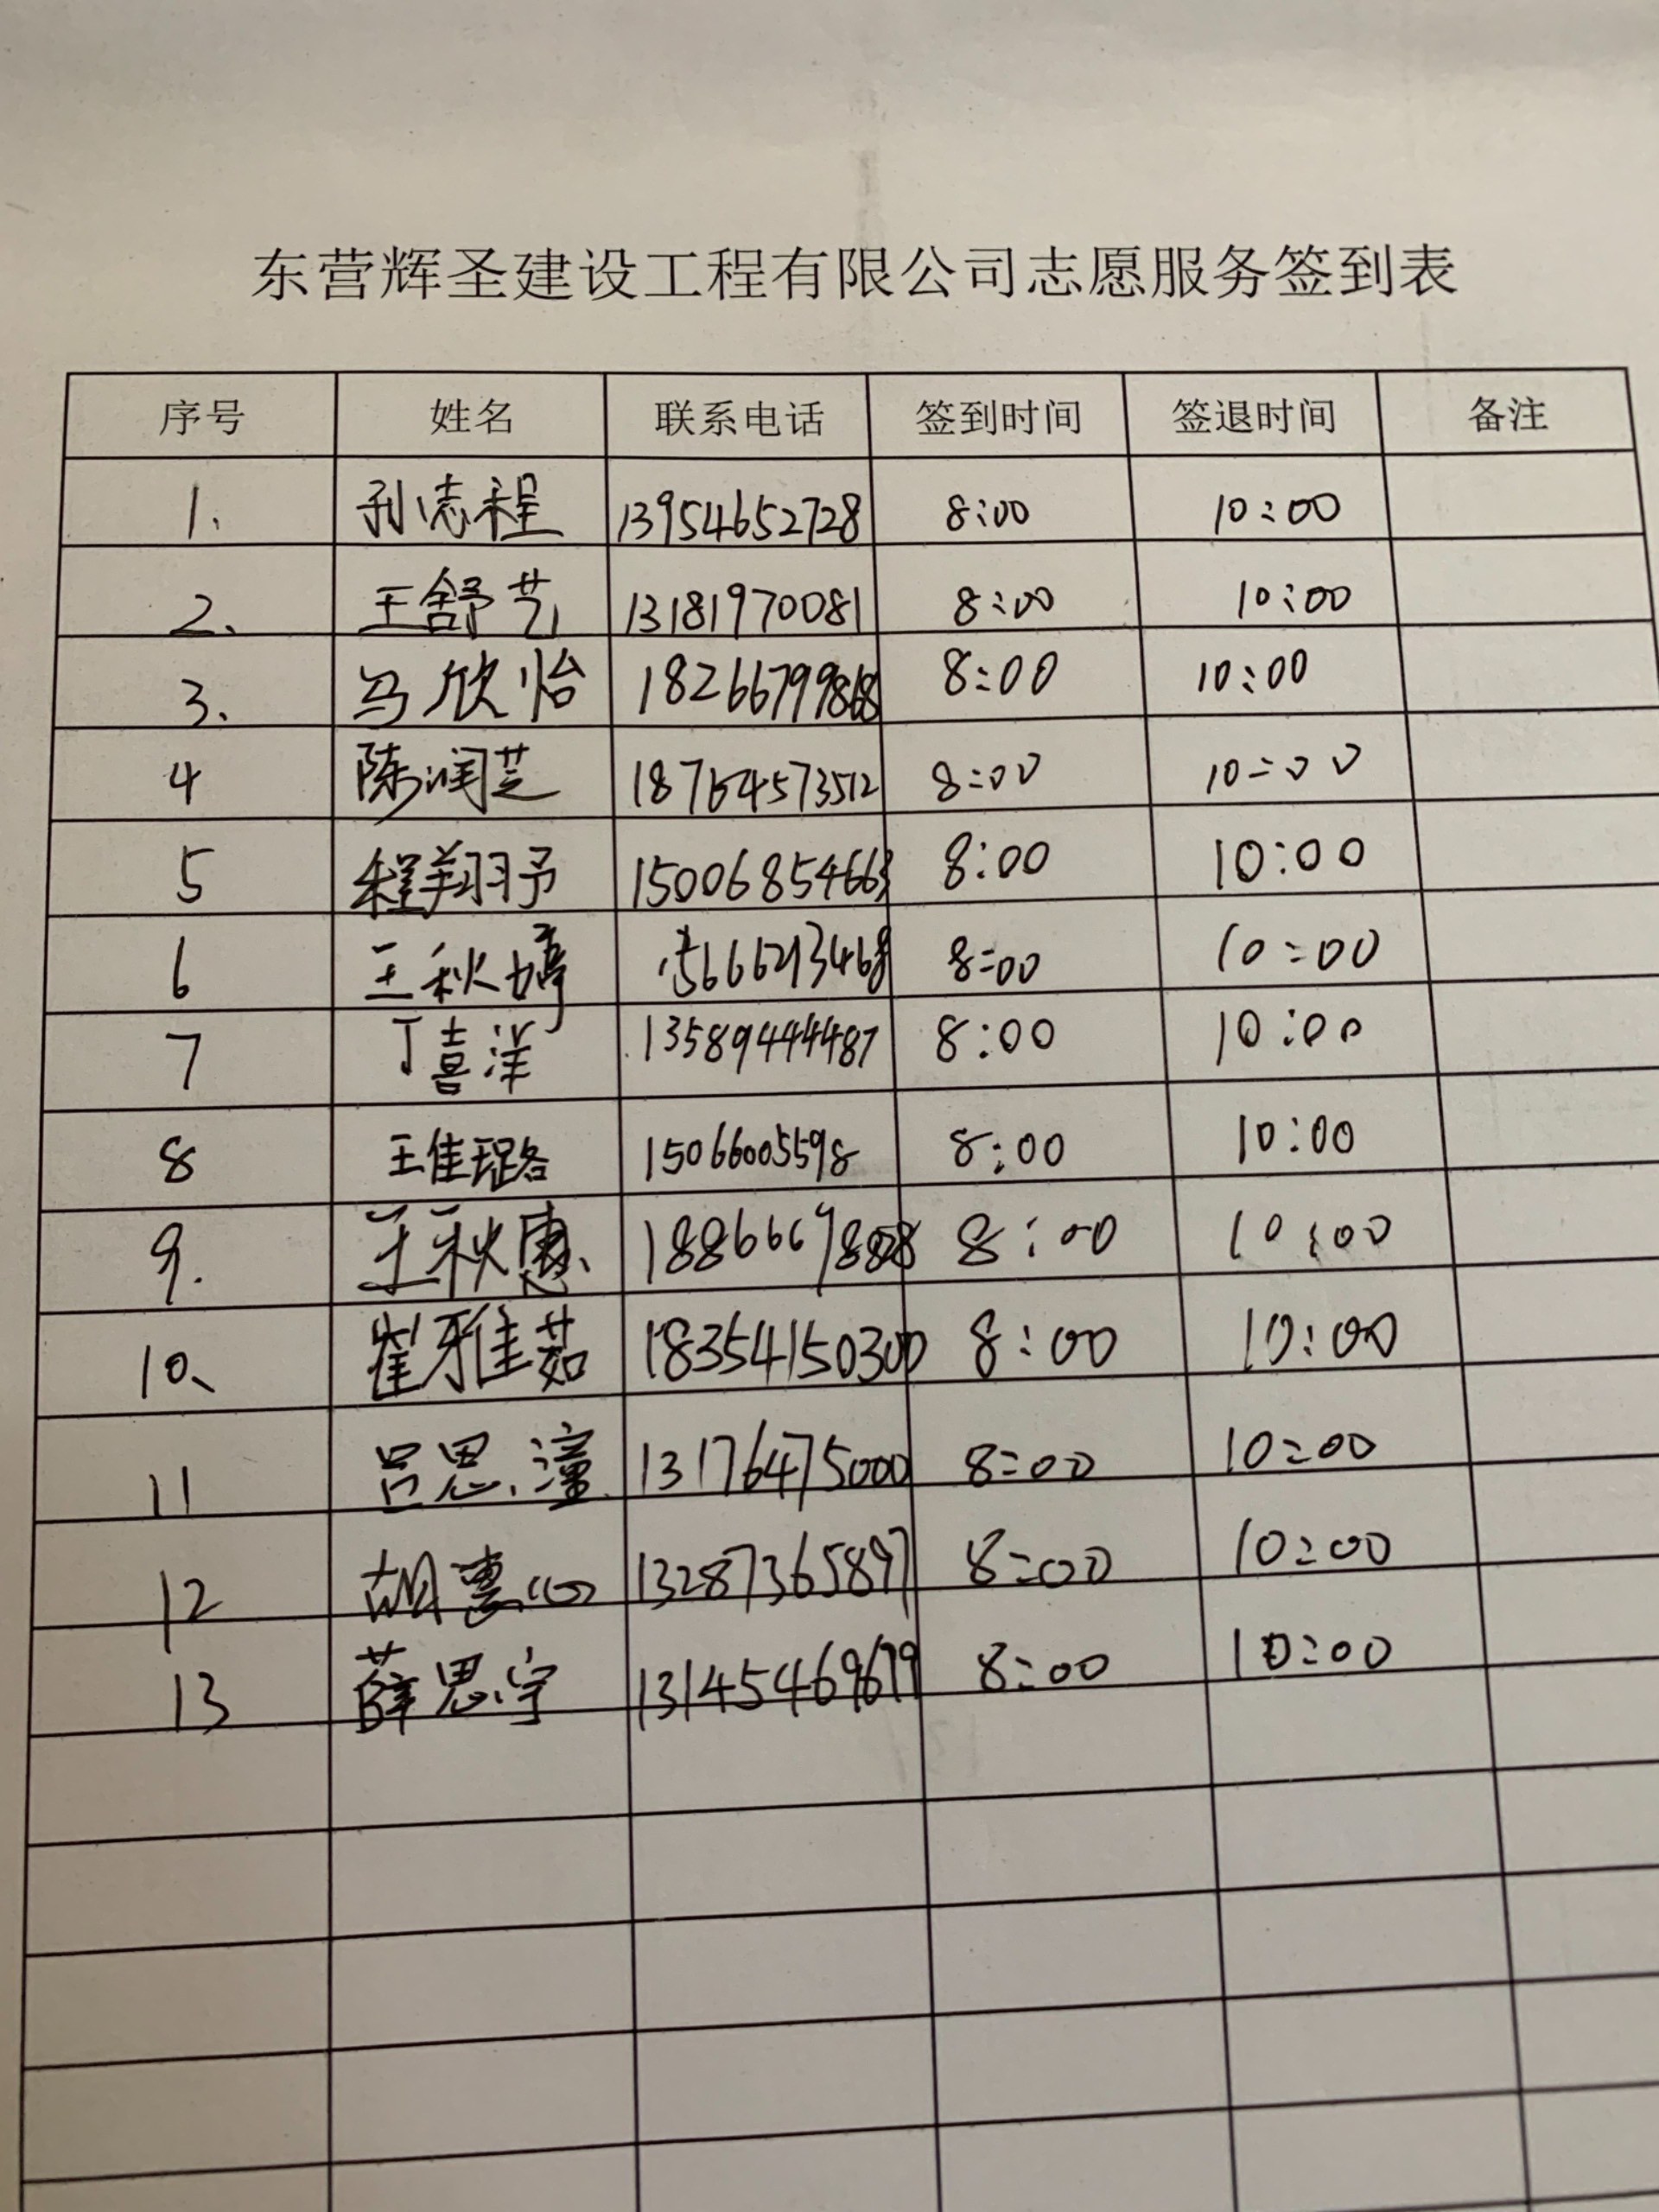 东营辉圣建设工程有限公司志愿服务签到表
序号 姓名 联系电话 签到时间 签退时间 备注
1. 孙志程 13954652728 8:00 10:00
2. 王舒艺 13181970081 8:00 10:00
3. 马欣怡 18266799868 8:00 10:00
4 陈润芝 18764573512 8:00 10:00
5 程翔予 15006854663 8:00 10:00
6 王秋婷 15666213468 8:00 10:00
7 丁喜洋 13589444487 8:00 10:00
8 王佳璐 15066005598 8:00 10:00
9. 王秋惠 8:00 10:00
10、 崔雅茹 18354150300 8:00 10:00
11 吕思潼 13176475000 8:00 10:00
12 胡惠心 13287365897 8:00 10:00
13 薛思宇 13145469679 8:00 10:00